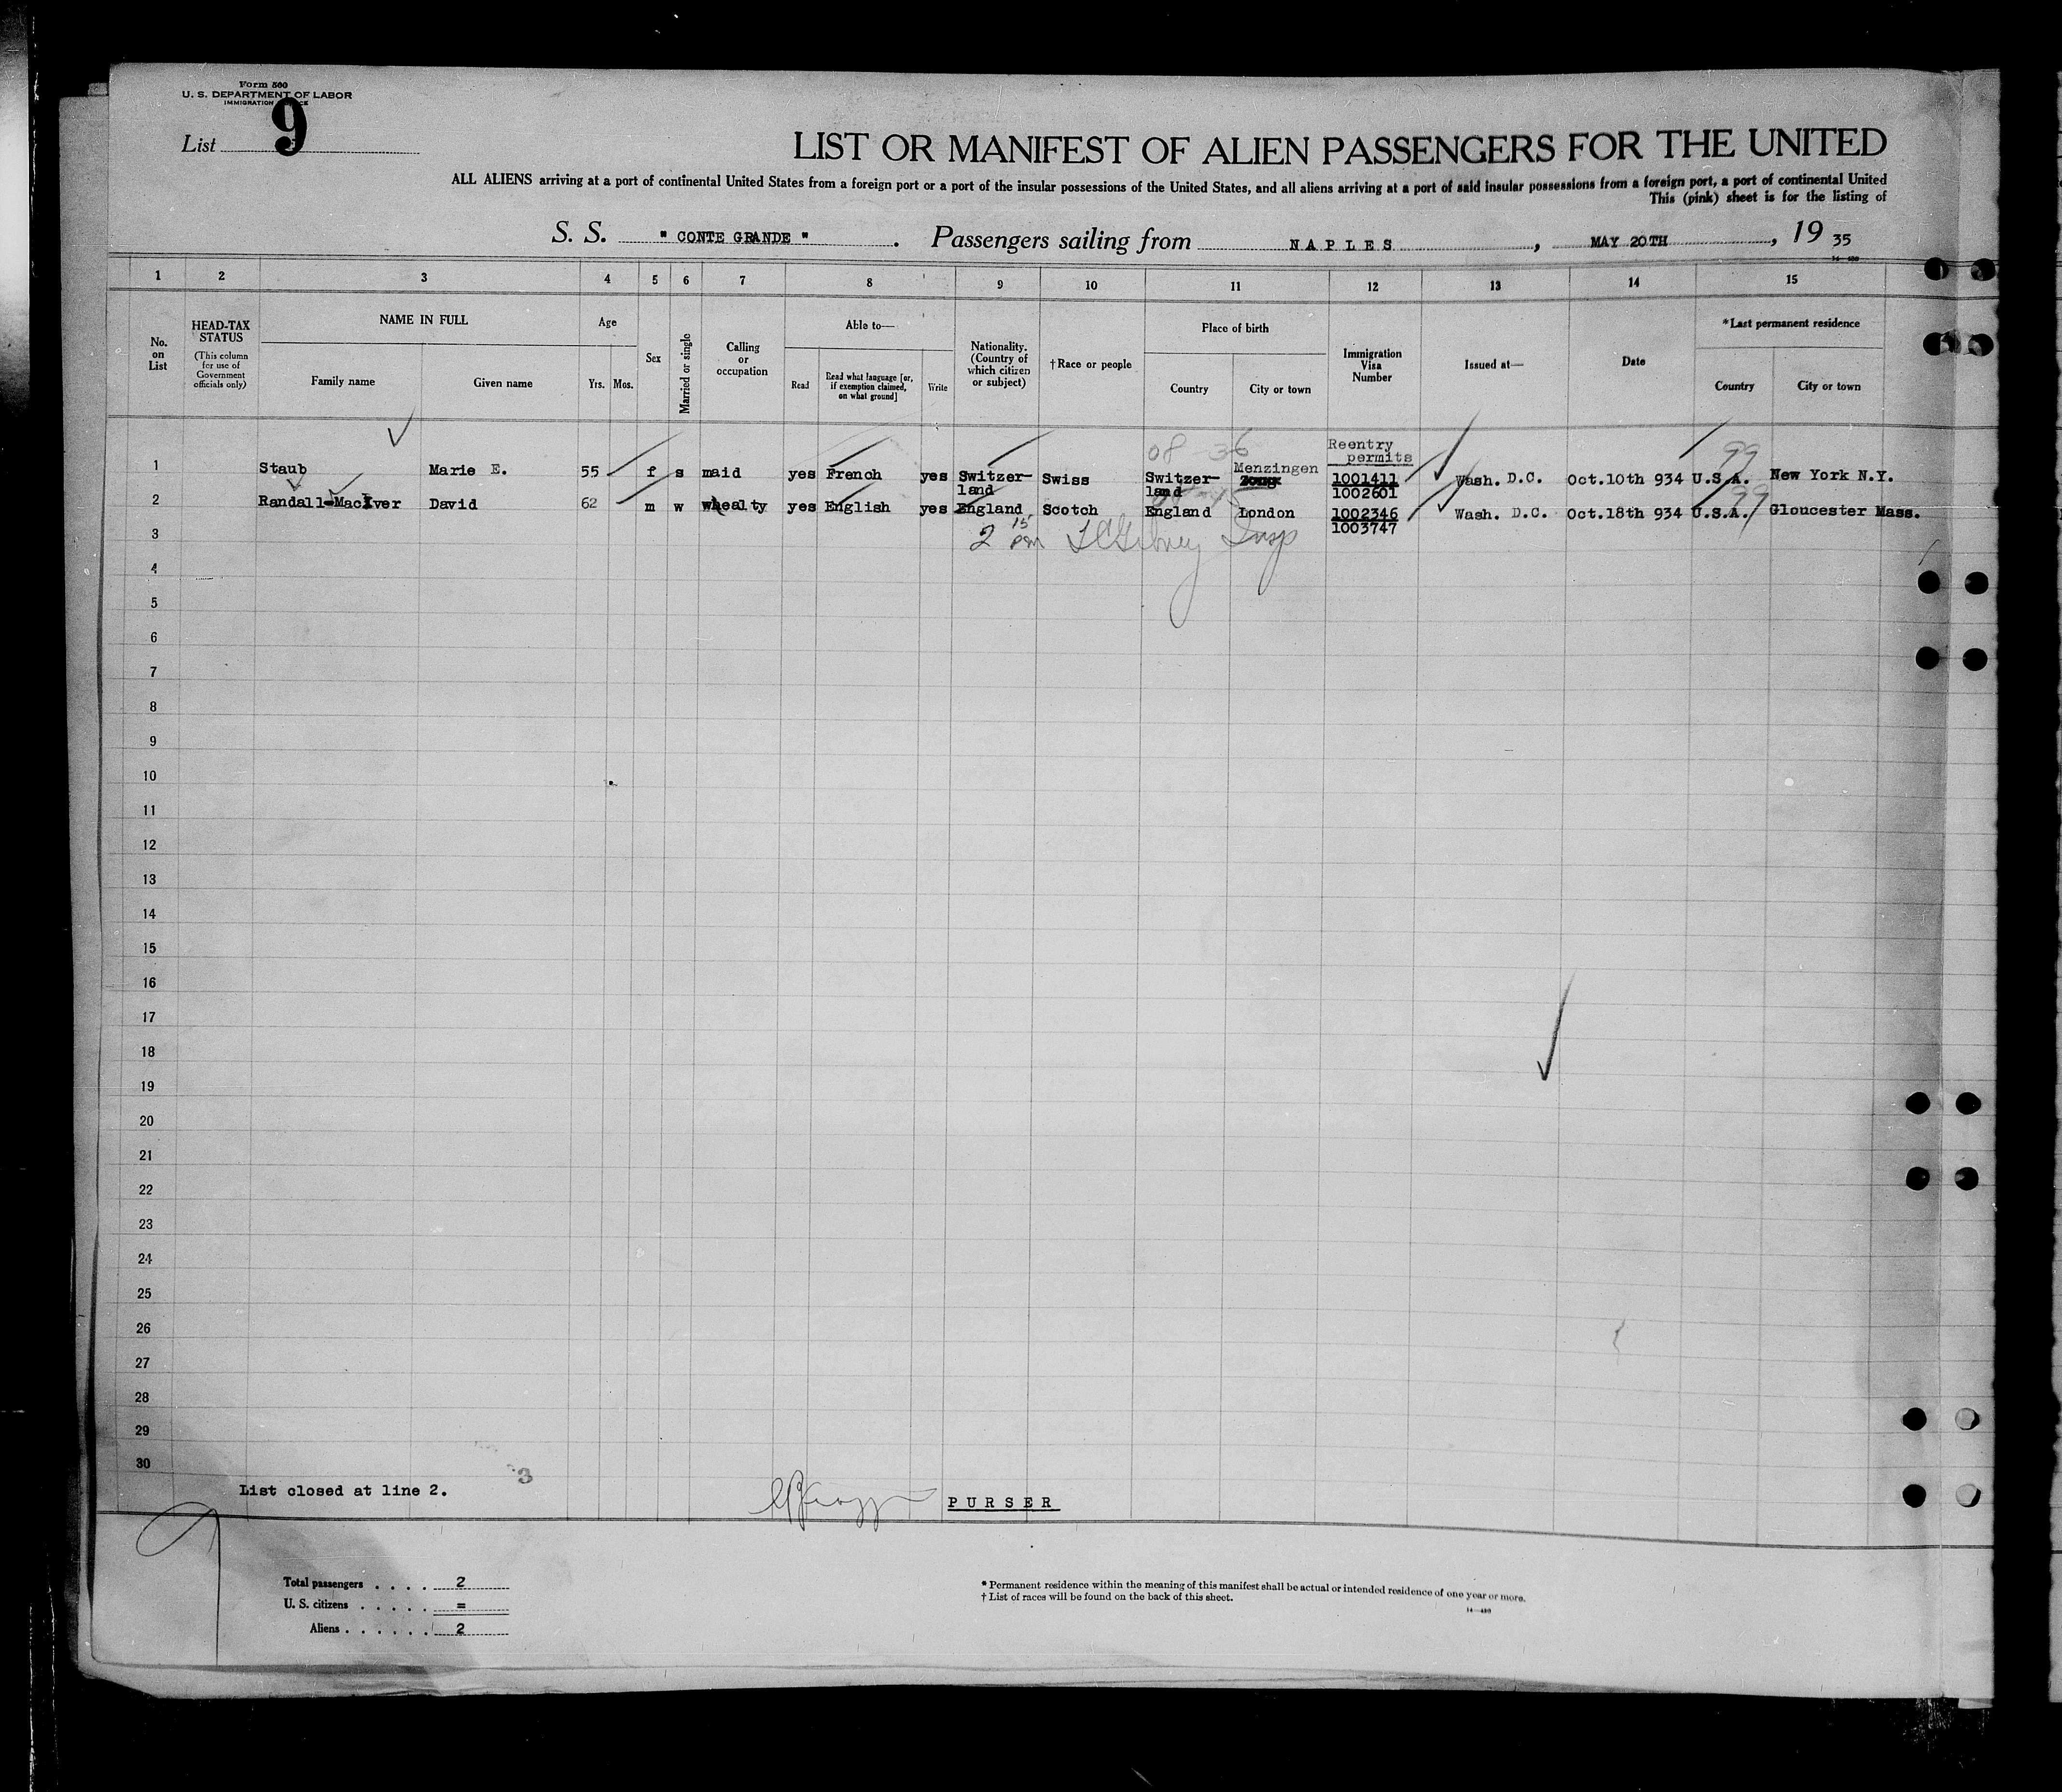 Form 500
U. S. DEPARTMENT OF LABOR
IMMIGRATION
List 9
LIST OR MANIFEST OF ALIEN PASSENGERS FOR THE UNITED
ALL ALIENS arriving at a port of continental United States from a foreign port or a port of the insular possessions of the United States, and all aliens arriving at a port of said insular possessions from a foreign port, a port of continental United
This (pink) sheet is for the listing of
S. S. " CONTE GRANDE " . Passengers sailing from NAPLES , MAY 20TH , 19 35
1 2 3 4 5 6 7 8 9 10 11 12 13 14 15
No. on List
HEAD-TAX STATUS
(This column for use of Government officials only)
NAME IN FULL
Family name Given name
Age
Yrs. Mos.
Sex
Married or single
Calling or occupation
Able to—
Read
Read what language [or, if exemption claimed, on what ground]
Write
Nationality. (Country of which citizen or subject)
† Race or people
Place of birth
Country City or town
Immigration Visa Number
Issued at—
Date
*Last permanent residence
Country City or town
08 - 36
Reentry permits
99
1 Staub Marie E. 55 f s maid yes French yes Switzer-land Swiss Switzer-land Menzingen 1001411 Wash. D.C. Oct.10th 934 U.S.A. New York N.Y.
1002601
99
2 Randall-MacIver David 62 m w whealty yes English yes England Scotch England London 1002346 Wash. D.C. Oct.18th 934 U.S.A. Gloucester Mass.
1003747
3
2 15 pm Insp
4
5
6
7
8
9
10
11
12
13
14
15
16
17
18
19
20
21
22
23
24
25
26
27
28
29
30
3
List closed at line 2.
PURSER
9
Total passengers . . . . 2
U. S. citizens . . . . . =
Aliens . . . . . . 2
* Permanent residence within the meaning of this manifest shall be actual or intended residence of one year or more.
† List of races will be found on the back of this sheet.
14—480